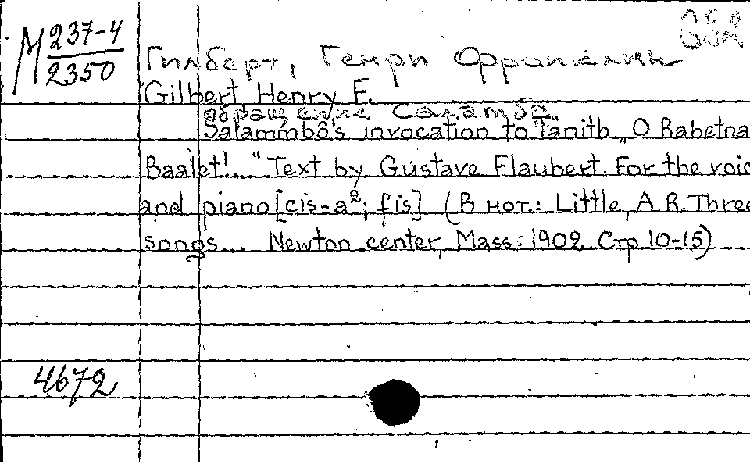 M 237-4
2350
Гилберт, Генри Франклин
Gilbert Henry F.
обращение Саламбо
Salammbô's invocation to Tanith „O Rabetna
Baalet!..." Text by Gustave Flaubert. For the voic
and piano [cis-a²; fis] (В нот.: Little, A.R. Three
songs... Newton center, Mass: 1902. Стр 10-15)
4672